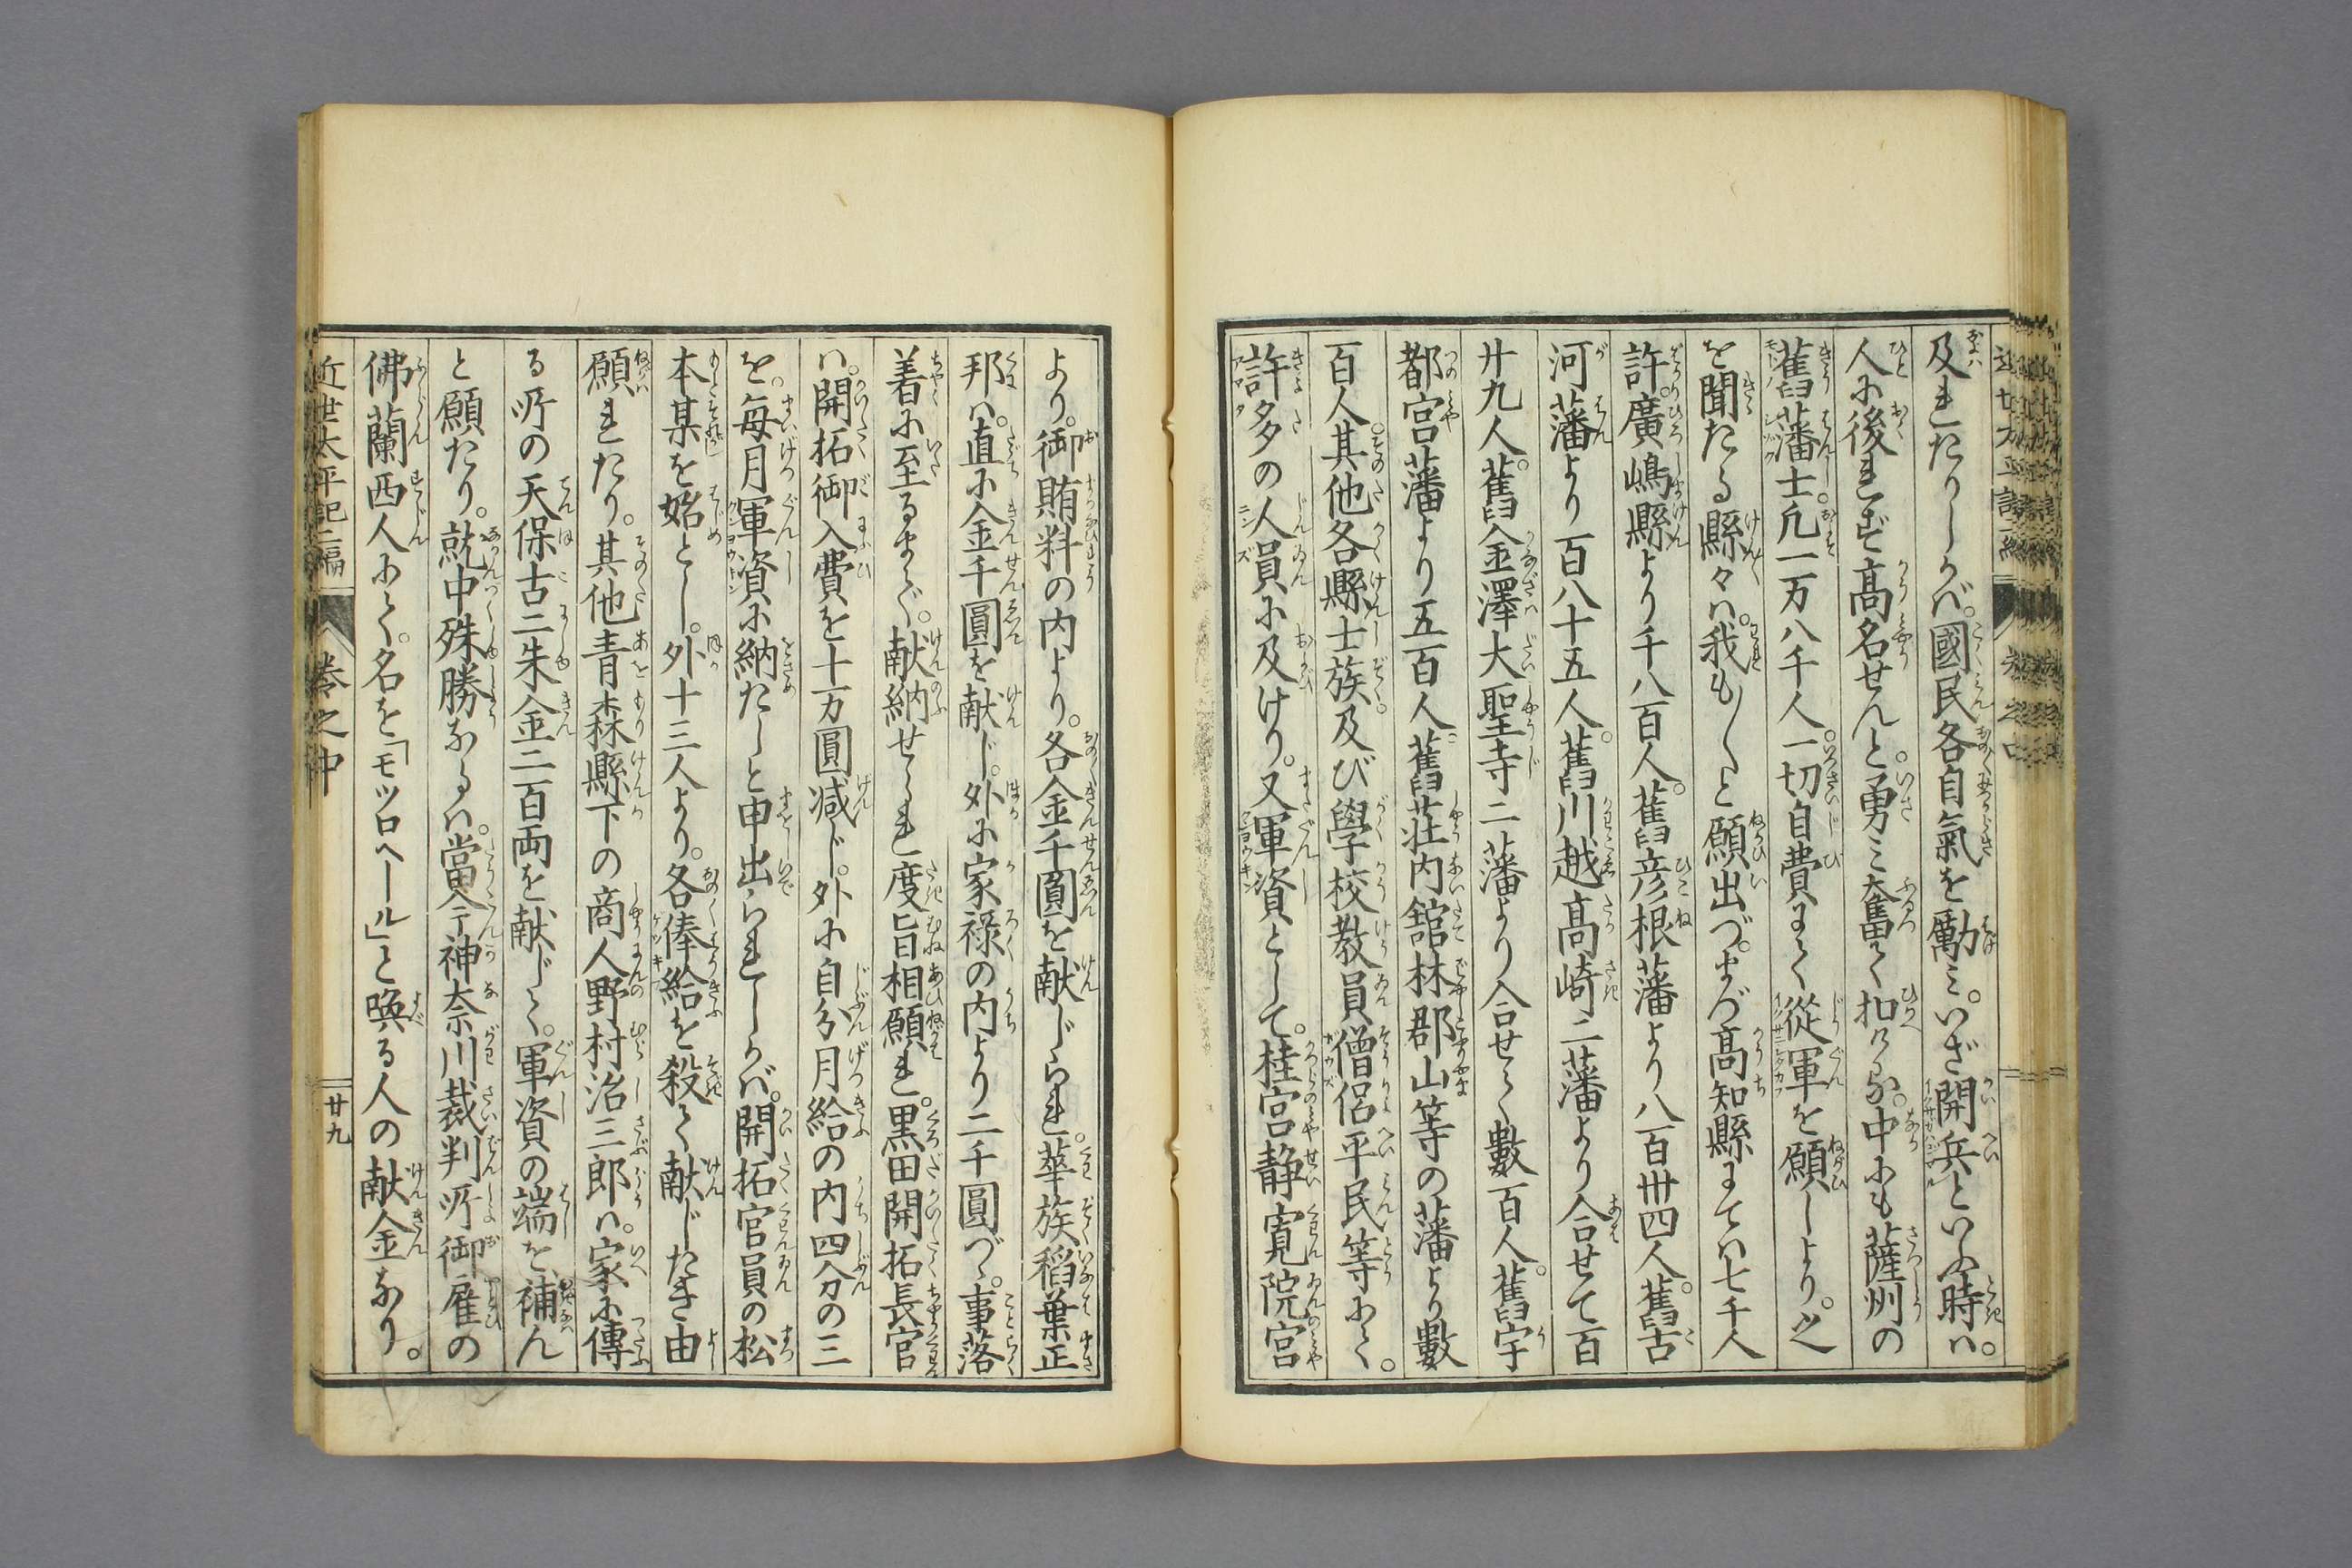 及れたりしかバ。國民各自氣を勵ミ。いざ開兵といふ時ハ。
人に後れず高名せんと。勇ミ奮て扣けるが。中にも薩州の
舊藩士。凡一万八千人。一切自費にて從軍を願しより。之
を聞たる縣々ハ。我も〳〵と願出づ。まづ高知縣にてハ七千人
許。廣嶋縣より千八百人。舊彦根藩より八百卅四人。舊古
河藩より百八十五人。舊川越高崎二藩より合せて百
廿九人。舊金澤大聖寺二藩より合せて數百人。舊宇
都宮藩より五百人。舊莊内舘林郡山等の藩より數
百人。其他各縣士族。及び學校教員僧侶平民等にて。
許多の人員に及けり。又軍資として。桂宮静寛院宮
より。御賄料の内より。各金千圓を献じられ。華族稲葉正
邦ハ。直に金千圓を献じ。外に家禄の内より二千圓づゝ。事落
着に至るまで。献納せられ度旨相願れ。黒田開拓長官
ハ。開拓御入費を十万圓減じ。外に自分月給の内四分の三
を。毎月軍資に納たしと申出られしかバ。開拓官員の松
本某を始とし。外十三人より。各俸給を殺て献じたき由
願れたり。其他青森縣下の商人野村治三郎ハ。家に傳
る所の天保古二朱金二百両を献じて。軍資の端を補ん
と願たり。就中殊勝なるハ。當今神奈川裁判所御雇の
佛蘭西人にて。名を「モツロヘール」と喚る人の献金なり。
近世太平記二編
巻之中
廿九